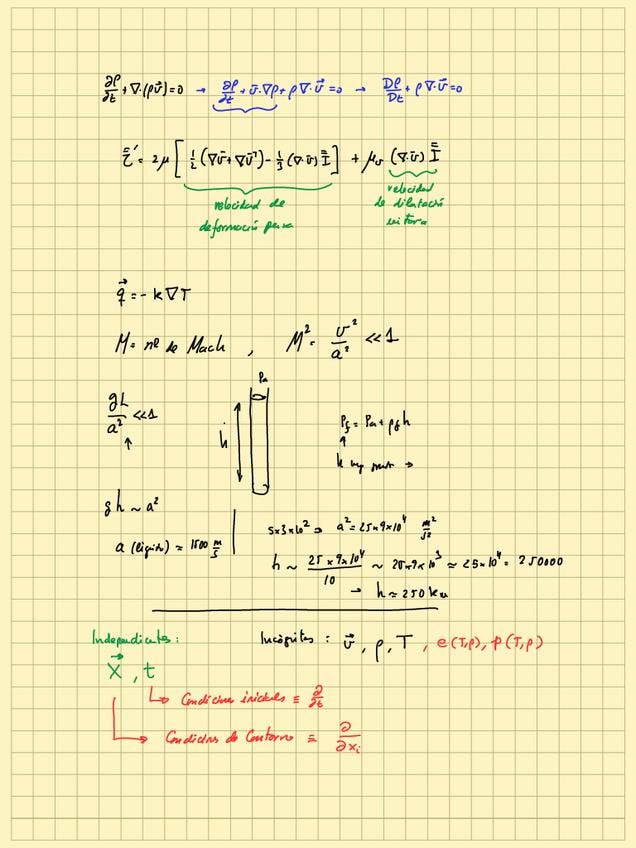 ∂ρ/∂t + ∇·(ρv⃗) = 0 → ∂ρ/∂t + v̄·∇ρ + ρ∇·v⃗ = 0 → Dρ/Dt + ρ∇·v̄ = 0
τ̿' = 2μ [ 1/2 (∇v̄ + ∇v̄ᵀ) - 1/3 (∇·v̄) I̿ ] + μᵥ (∇·v̄) I̿
velocidad de deformació pura
velocidad de dilatació
q⃗ = - k ∇T
M = nº de Mach , M² = v²/a² << 1
gL/a² << 1
↑
Pa
h
Pf = Pa + ρgh
↑
k
→
gh ~ a²
a (liquido) ≈ 1500 m/s
5x3x10² ⇒ a² = 25x9x10⁴ m²/s²
h ~ 25x9x10⁴/10 ~ 25x9x10³ ≈ 25x10⁴ = 250000
→ h ≈ 250 km
Independientes:
x⃗, t
Incògnites : v̄, ρ, T, e(T,ρ), p(T,ρ)
↳ Condicions inicials ≡ ∂/∂t
↳ Condicions de Contorno ≡ ∂/∂xᵢ